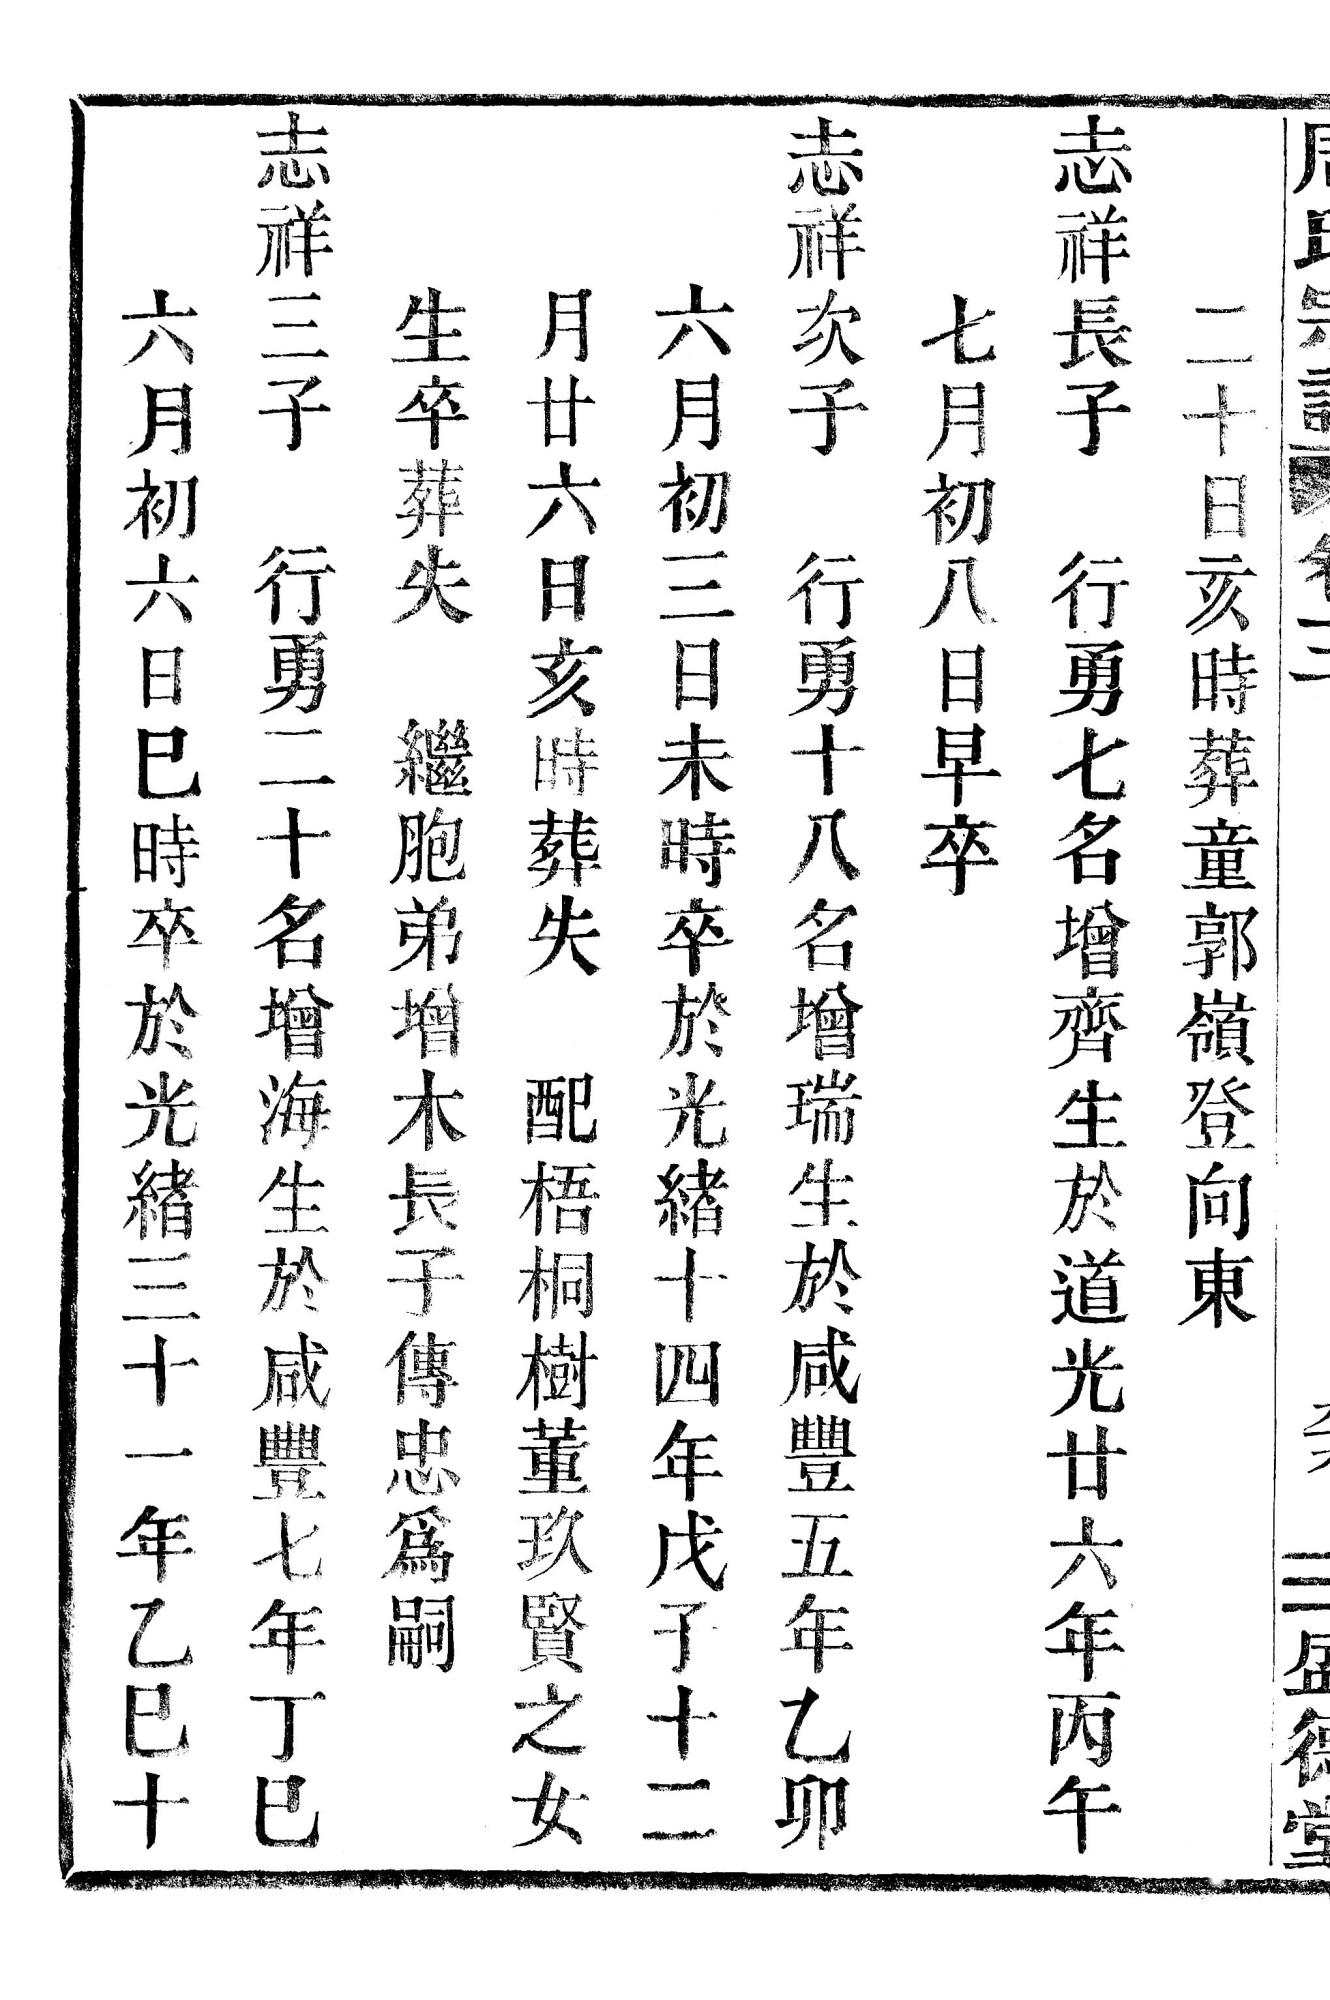 周氏宗譜 卷三 三 盛德堂
二十日亥時葬童郭嶺登向東
志祥長子 行勇七名增齊生於道光廿六年丙午
七月初八日早卒
志祥次子 行勇十八名增瑞生於咸豐五年乙卯
六月初三日未時卒於光緒十四年戊子十二
月廿六日亥時葬失 配梧桐樹董玖賢之女
生卒葬失 繼胞弟增木長子傳忠爲嗣
志祥三子 行勇二十名增海生於咸豐七年丁巳
六月初六日巳時卒於光緒三十一年乙巳十